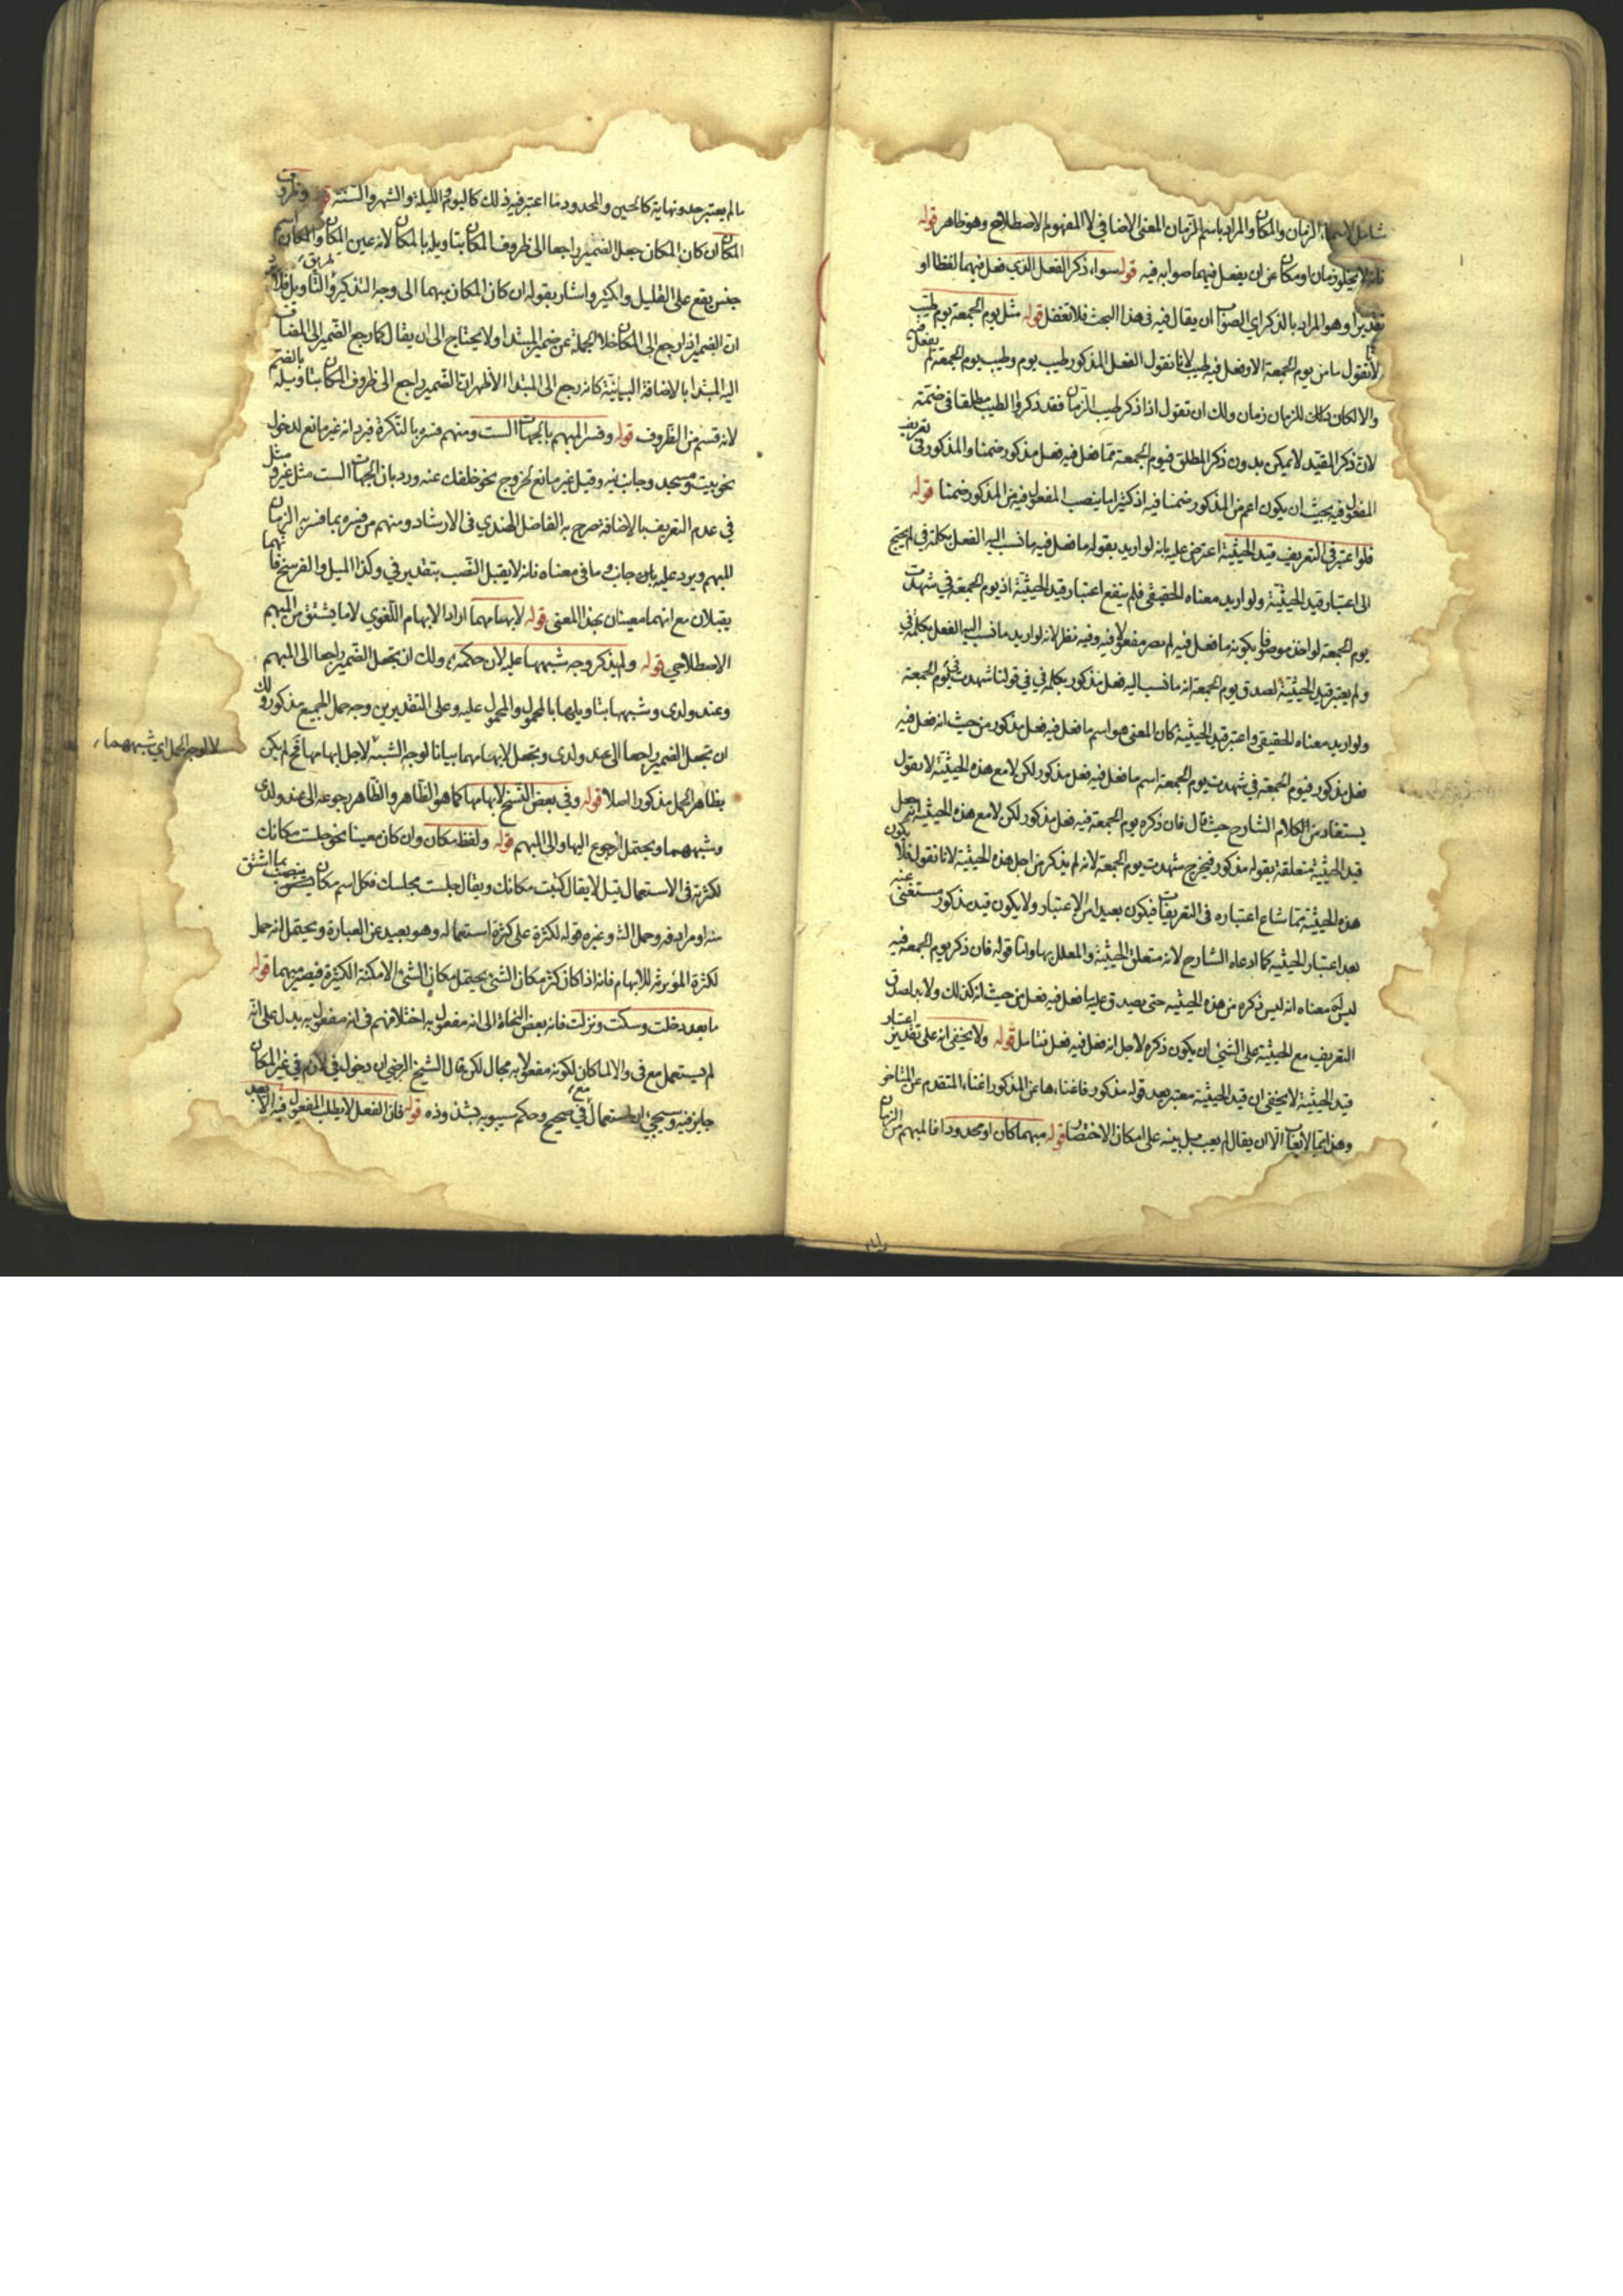 شامل لاسماء الزمان والمكان والمراد باسم الزمان المعنى الاضافي لا المفهوم الاصطلاحي وهو ظاهر قوله
فانه لا يخلو زمان او مكان عن ان يفعل فيهما صوابه فيه قوله سواء ذكر الفعل الذي فعل فيهما لفظا او
تقديرا وهو المراد بالذكر اي الصواب ان يقال فيه في هذا البحث فلا تغفل قوله مثل يوم الجمعة يوم طيب
لا نقول ما من يوم الجمعة الا وفعل فيه طيب لانا نقول الفعل المذكور طيب يوم وطيب يوم الجمعة لم يفعل فيه
والا لكان للزمان زمان ولك ان تقول اذا ذكر طيب الزمان فقد ذكروا الطيب مطلقا في ضمنه
لان ذكر المقيد لا يمكن بدون ذكر المطلق فيوم الجمعة مما فعل فيه فعل مذكور ضمنا والمذكور في تعريف
المفعول فيه يجب ان يكون اعم من المذكور ضمنا فيه اذ كثيرا ما ينصب المفعول فيه من المذكور ضمنا قوله
فلو اعتبر في التعريف قيد الحيثية اعترض عليه بانه لو اريد بقوله ما فعل فيه ما نسب اليه الفعل بكلمة في لم يحتج
الى اعتبار قيد الحيثية ولو اريد معناه الحقيقي فلم ينفع اعتبار قيد الحيثية اذ يوم الجمعة في شهدت
يوم الجمعة لو اخذ موصوفا بكونه ما فعل فيه لم يصر مفعولا فيه وفيه نظر لانه لو اريد ما نسب اليه الفعل بكلمة في
ولم يعتبر قيد الحيثية لصدق يوم الجمعة انه ما نسب اليه فعل مذكور بكلمة في في قولنا شهدت في يوم الجمعة
ولو اريد معناه الحقيقي واعتبر قيد الحيثية كان المعنى هو اسم ما فعل فيه فعل مذكور من حيث انه فعل فيه
فعل مذكور فيوم الجمعة في شهدت يوم الجمعة اسم ما فعل فيه فعل مذكور لكن لا مع هذه الحيثية لا نقول
يستفاد من الكلام الشارح حيث قال فان ذكره يوم الجمعة فيه فعل مذكور لكن لا مع هذه الحيثية انه جعل
قيد الحيثية متعلقة بقوله مذكور فيخرج شهدت يوم الجمعة لانه لم يذكر من اجل هذه الحيثية لانا نقول فلا يكون
هذه الحيثية مما شاع اعتباره في التعريفات فيكون بعيدا من الاعتبار ولا يكون قيد مذكور مستغنى عنه
بعد اعتبار الحيثية كما ادعاه الشارح لانه متعلق الحيثية والمعلل بها واما قوله فان ذكر يوم الجمعة فيه
ليس معناه انه ليس ذكره من هذه الحيثية حتى يصدق عليه ما فعل فيه فعل من حيث انه كذلك ولا بد لصدق
التعريف مع الحيثية على الشيء ان يكون ذكره لاجل انه فعل فيه فعل فتامل قوله ولا يخفى انه على تقدير اعتبار
قيد الحيثية لا يخفى ان قيد الحيثية معتبر بعد قوله مذكور فاغناءها عن المذكور اغناء المتقدم عن المتاخر
وهذا مما لا يعاب الا ان يقال لم يعب بل بينه على امكان الاختصار قوله مبهما كان او محدودا فالمبهم من الزمان
ما لم يعتبر حد ونهاية كالحين والمحدود ما اعتبر فيه ذلك كاليوم والليلة والشهر والسنة قوله وظروف
المكان ان كان المكان جعل الضمير راجعا الى ظروف المكان بتاويله بالمكان لانه عين المكان والمكان اسم
جنس يقع على القليل والكثير واشار بقوله ان كان المكان مبهما الى وجه التذكير والتاويل فلا يرد
ان الضمير اذا رجع الى المكان خلا الجملة عن ضمير المبتدا ولا يحتاج الى ان يقال كما رجع الضمير الى المضاف
اليه المبتدا بالاضافة البيانية كانه رجع الى المبتدا الا ظهر ان الضمير راجع الى ظروف المكان بتاويله بالقسم
لانه قسم من الظروف قوله وفسر المبهم بالجهات الست ومنهم من فسره بالنكرة فيرد انه غير مانع لدخول
نحو بيت ومسجد وجانب فيه وقيل غير مانع لخروج نحو خلفك عنه ورد بان الجهات الست مثل غير ومثل
في عدم التعريف بالاضافة صرح به الفاضل الهندي في الارشاد ومنهم من فسره بما فسر به الزمان
المبهم ويرد عليه بان جانب وما في معناه فانه لا يقبل النصب بتقدير في وكذا الميل والفرسخ فانهما
يقبلان مع انهما معينان بهذا المعنى قوله لابهامهما اراد الابهام اللغوي لا ما يشتق من المبهم
الاصطلاحي قوله ولم يذكر وجه شبههما عليه لان حكمه ولك ان تجعل الضمير راجعا الى المبهم
وعند ولدى وشبههما بتاويلها بالمحمول والمحمول عليه وعلى التقديرين وجه حمل الجميع مذكور ولك
ان تجعل الضمير راجعا الى عند ولدى وتجعل لابهامهما بيانا لوجه الشبه لاجل ابهامهما فح لم يكن
لا لوجه الحمل اي شبههما
بظاهر الحمل مذكورا اصلا قوله وفي بعض النسخ لابهامها كما هو الظاهر والظاهر رجوعه الى عند ولدى
وشبههما ويحتمل الرجوع اليها والى المبهم قوله ولفظ مكان وان كان معينا نحو جلست مكانك
لكثرته في الاستعمال قيل لا يقال كتبت مكانك ويقال جلست مجلسك فكل اسم مكان ينصب بما اشتق
منه او مرادفه وحمل الش وغيره قوله لكثرة على كثرة استعماله وهو بعيد عن العبارة ويحتمل انه حمل
لكثرة المؤثر للابهام فانه اذا كان كثر مكان الشيء يحتمل مكان الشيء الامكنة الكثيرة فيصير مبهما قوله
ما بعد دخلت وسكنت ونزلت فانه بعض النحاة الى انه مفعول به اختلافهم في انه مفعول به يدل على انه
لم يستعمل مع في والا لما كان لكونه مفعولا به مجال لكن قال الشيخ الرضي ان دخول في لازم في غير المكان
جايز فيه وسيجيء ان استعماله مع في صحيح وحكم سيبويه بشذوذه قوله فان الفعل لا يطلب المفعول فيه الا بعد